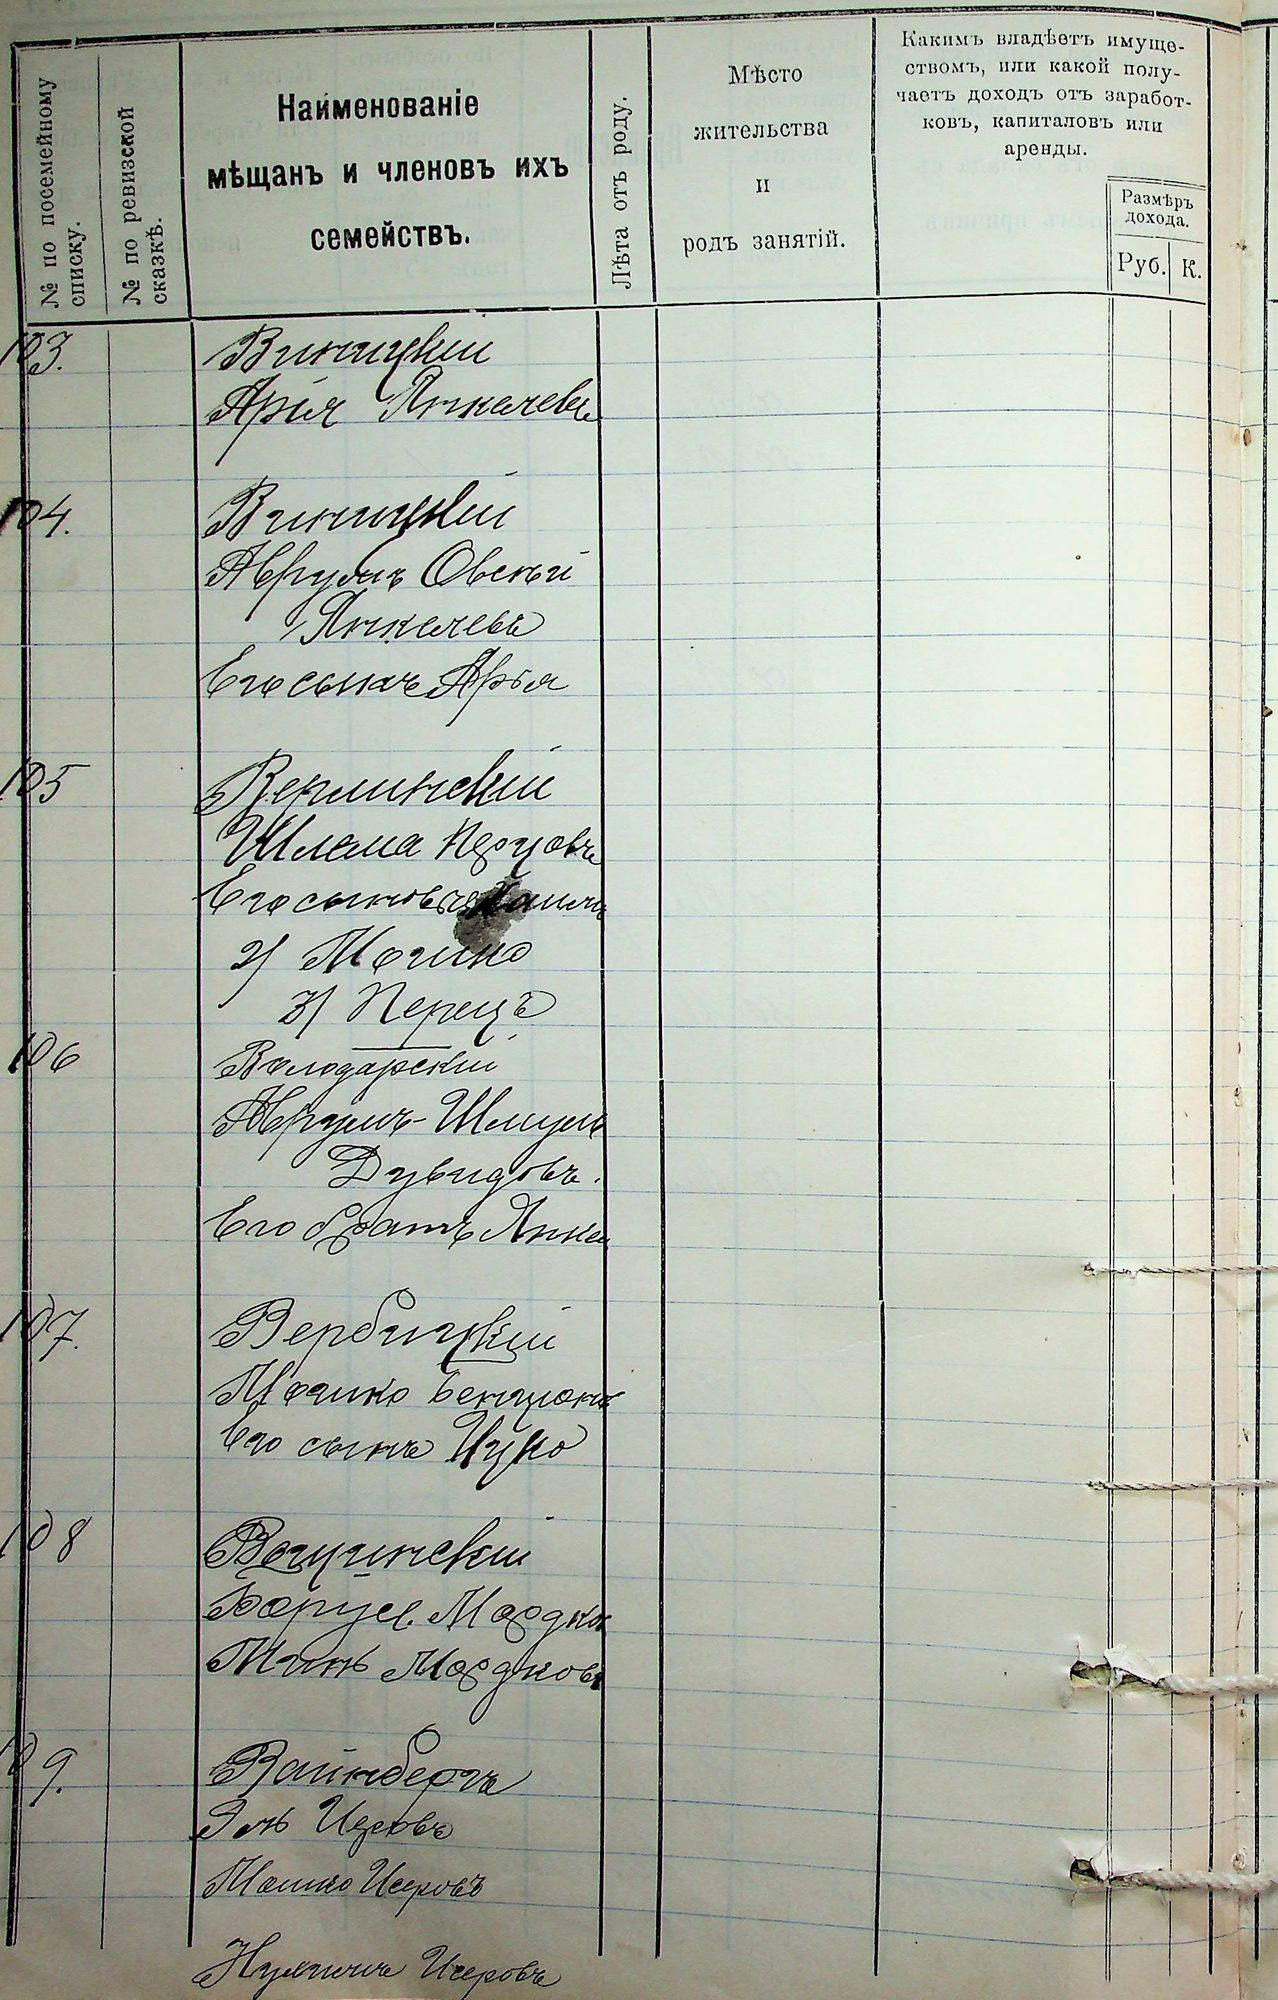 № по посемейному
списку.
№ по ревизской
сказкѣ.
Наименованіе
мѣщанъ и членовъ ихъ
семействъ.
Лѣта отъ роду.
Мѣсто
жительства
и
родъ занятій.
Какимъ владѣетъ имуще-
ствомъ, или какой полу-
чаетъ доходъ отъ заработ-
ковъ, капиталовъ или
аренды.
Размѣръ
дохода.
Руб.
К.
103. Виницкій
Арія Янкелевъ
104. Виницкій
Аврумъ Овсѣй
Янкелевъ
Его сынъ Арья
105 Верлинскій
Шлема Перцовъ
Его сыновья
2) Мошко
3) Перецъ
106 Володарскій
Аврумъ-Шмуль
Дувидовъ.
Его братъ Янкел
107. Вербицкій
Мошко Бенціонъ
Его сынъ Ицко
108 Вощинскій
Борух Мордков
Мордковъ
109. Вайнбергъ
Эль Исеровъ
Мошко Исеровъ
Исеровъ